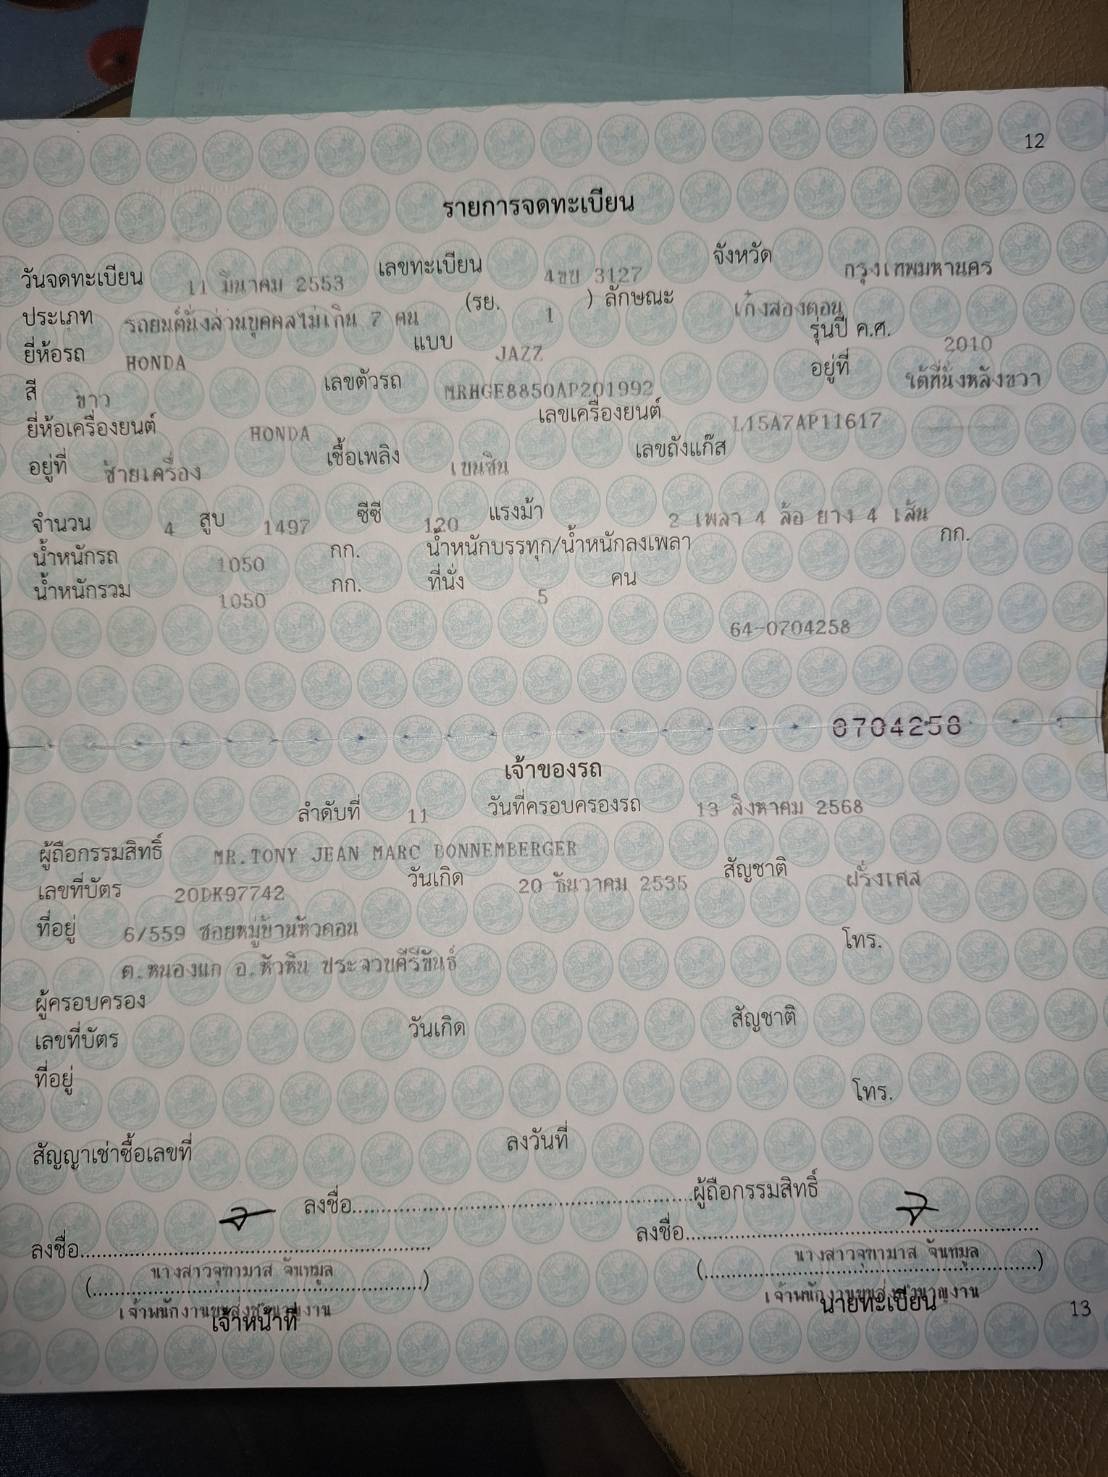 12
รายการจดทะเบียน
วันจดทะเบียน 11 มีนาคม 2553 เลขทะเบียน 4ขบ 3127 จังหวัด กรุงเทพมหานคร
ประเภท รถยนต์นั่งส่วนบุคคลไม่เกิน 7 คน (รย. 1 ) ลักษณะ เก๋งสองตอน
ยี่ห้อรถ HONDA แบบ JAZZ รุ่นปี ค.ศ. 2010
สี ขาว เลขตัวรถ MRHGE8850AP201992 อยู่ที่ ใต้ที่นั่งหลังขวา
ยี่ห้อเครื่องยนต์ HONDA เลขเครื่องยนต์ L15A7AP11617
อยู่ที่ ซ้ายเครื่อง เชื้อเพลิง เบนซิน เลขถังแก๊ส
จำนวน 4 สูบ 1497 ซีซี 120 แรงม้า 2 เพลา 4 ล้อ ยาง 4 เส้น
น้ำหนักรถ 1050 กก. น้ำหนักบรรทุก/น้ำหนักลงเพลา กก.
น้ำหนักรวม 1050 กก. ที่นั่ง 5 คน
64-0704258
0704258
เจ้าของรถ
ลำดับที่ 11 วันที่ครอบครองรถ 13 สิงหาคม 2568
ผู้ถือกรรมสิทธิ์ MR.TONY JEAN MARC BONNEMBERGER
เลขที่บัตร 20DK97742 วันเกิด 20 ธันวาคม 2535 สัญชาติ ฝรั่งเศส
ที่อยู่ 6/559 ซอยหมู่บ้านหัวดอน โทร.
ต.หนองแก อ.หัวหิน ประจวบคีรีขันธ์
ผู้ครอบครอง
เลขที่บัตร วันเกิด สัญชาติ
ที่อยู่ โทร.
สัญญาเช่าซื้อเลขที่ ลงวันที่
ลงชื่อ........................................ผู้ถือกรรมสิทธิ์
ลงชื่อ........................................ ลงชื่อ........................................
(นางสาวจุฑามาส จันทมูล) (นางสาวจุฑามาส จันทมูล)
เจ้าพนักงานขนส่งชำนาญงาน เจ้าพนักงานขนส่งชำนาญงาน
เจ้าหน้าที่ นายทะเบียน
13